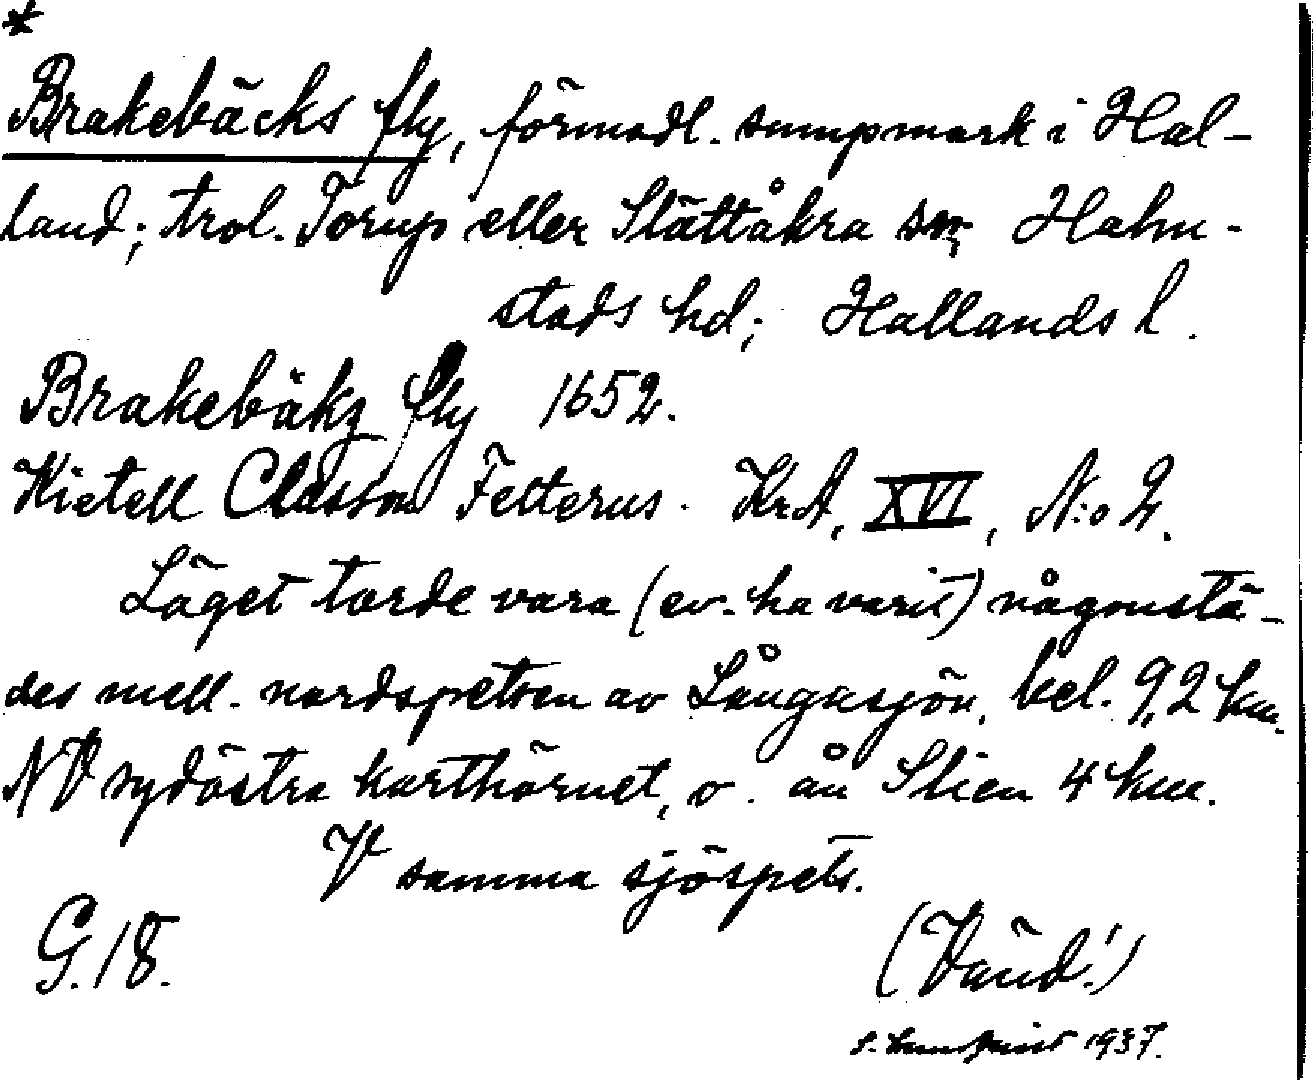 *
Brakebäcks fly, förmodl. sumpmark i Hal-
land; trol. Torup eller Slättåkra sn, Halm-
stads hd; Hallands l.
Brakebäkz fly 1652.
Kietell Classon Felterus. KrA, XVI, N:o 2.
Läget torde vara (ev. ha varit) någonstä-
des mell. nordspetsen av Långasjön, bel. 9,2 km.
NV sydöstra karthörnet, o. ån Slien 4 km.
V samma sjöspets.
G.18.
(Vänd!)
1937.